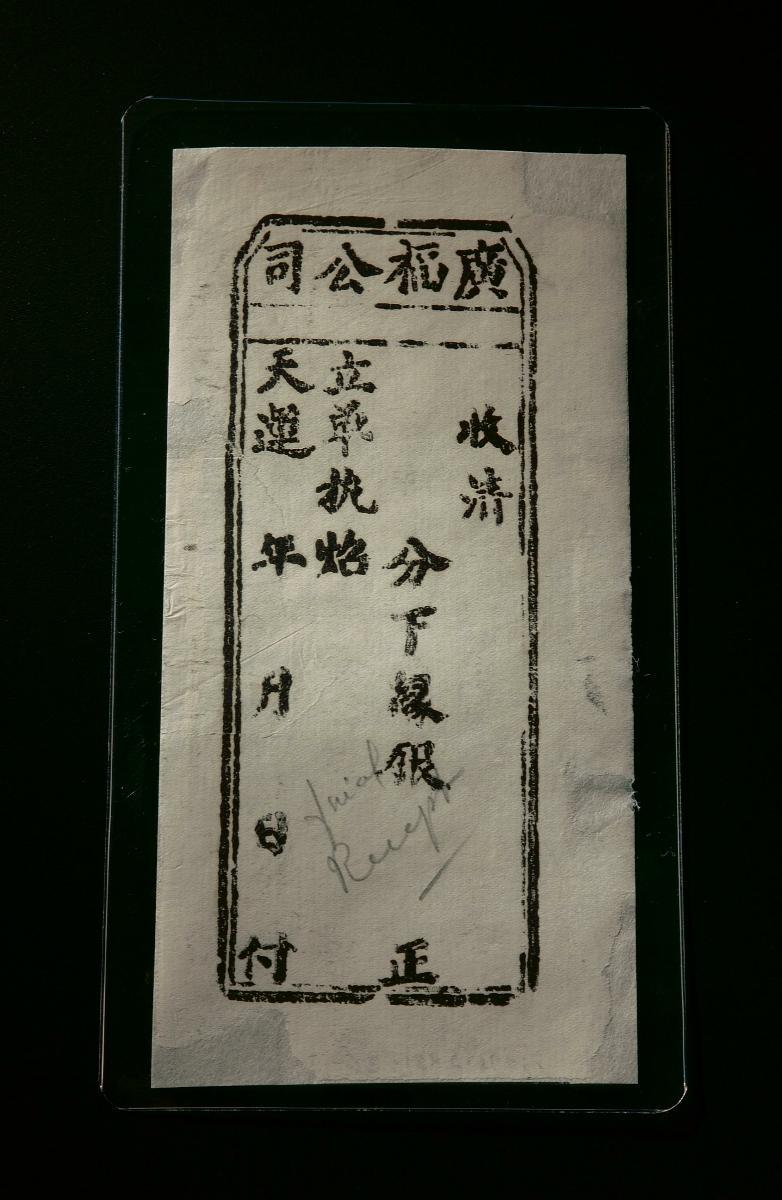 廣福公司
收清
分下緣銀 正
立單执炤
天運 年 月 日 付
Receipt